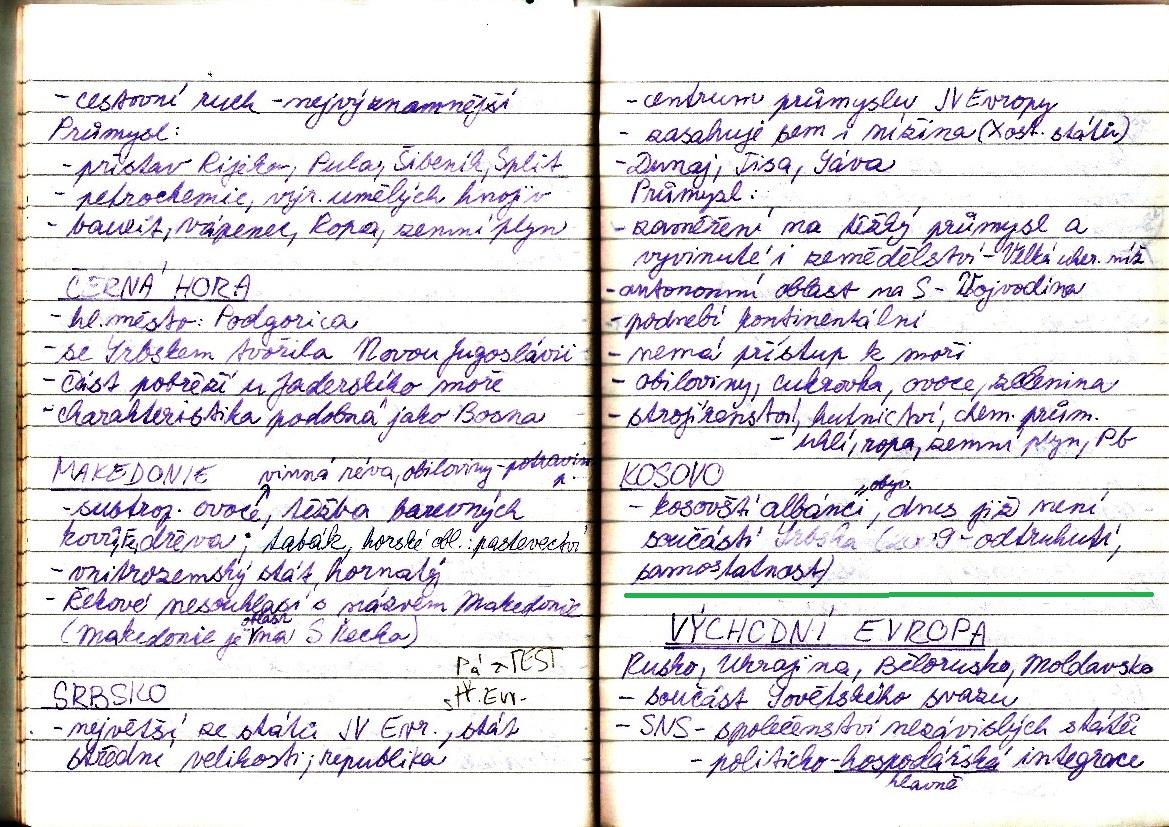 - cestovní ruch - nejvýznamnější
Průmysl:
- přístav Rijeka, Pula, Šibenik, Split
- petrochemie, výr. umělých hnojiv
- bauxit, vápenec, Ropa, zemní plyn
ČERNÁ HORA
- hl. město: Podgorica
- se Srbskem tvořila Novou Jugoslávii
- část pobřeží u Jaderského moře
- charakteristika podobná jako Bosna
MAKEDONIE vinná réva, obiloviny - potravin. p.
- subtrop. ovoce, těžba barevných
kovů, Fe, dřeva; tabák, horské obl.: pastevectví
- vnitrozemský stát, hornatý
- Řekové nesouhlasí s názvem Makedonie
(Makedonie je oblast na S Řecka)
Pá → TEST
stř. Evr.
SRBSKO
- největší ze států JV Evr., stát
střední velikosti; republika
- centrum průmyslu JV Evropy
- zasahuje sem i nížina (X ost. států)
- Dunaj, Tisa, Sáva
Průmysl:
- zaměření na těžký průmysl a
vyvinuté i zemědělství - Velká uher. níž.
- autonomní oblast na S - Vojvodina
- podnebí kontinentální
- nemá přístup k moři
- obiloviny, cukrovka, ovoce, zelenina
- strojírenství, hutnictví, chem. prům.
- uhlí, ropa, zemní plyn, Pb
KOSOVO
- kosovští albánci, obyv. dnes již není
součástí Srbska ( - odtrhnutí,
samostatnost)
VÝCHODNÍ EVROPA
Rusko, Ukrajina, Bělorusko, Moldavsko
- součást Sovětského svazu
- SNS - společenství nezávislých států
- politicko-hospodářská integrace
hlavně